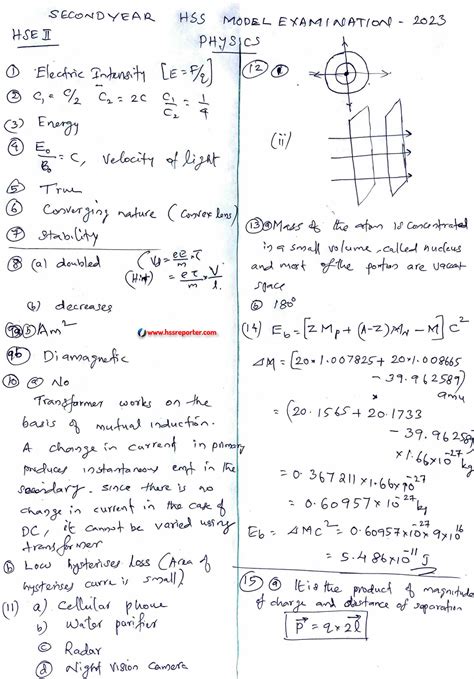 SECONDYEAR HSS MODEL EXAMINATION - 2023
HSE II
PHYSICS
(1) Electric Intensity [E = F/q]
(2) C₁ = C/2 C₂ = 2C C₁/C₂ = 1/4
(3) Energy
(4) E₀/B₀ = C, velocity of light
(5) True
(6) Converging nature (Convex lens)
(7) Stability
(8) (a) doubled (Vd = eE/m . τ
(Hint) = eτ/m . V/l.
(b) decreases
(9a) (b) Am²
www.hssreporter.com
(9b) Diamagnetic
(10) (a) No
Transformer works on the
basis of mutual induction.
A change in current in primary
produces instantaneous emf in the
secondary. Since there is no
change in current in the case of
DC, it cannot be varied using
transformer
(b) Low hysterises loss (Area of
hysterises curve is small)
(11) a) Cellular phone
b) Water purifier
(c) Radar
(d) Night vision camera
(12) (i)
(ii)
(13) (a) Mass of the atom is concentrated
in a small volume, called nucleus
and most of the portion are vacant
space
(b) 180°
(14) Eb = [Z Mp + (A-Z) MN - M] C²
ΔM = [20×1.007825 + 20×1.008665
- 39.962589)
amu
= (20.1565 + 20.1733
- 39.962589)
×1.66×10⁻²⁷
kg
= 0.367211×1.66×10⁻²⁷
= 0.60957×10⁻²⁷ kg
Eb = ΔMC² = 0.60957×10⁻²⁷×9×10¹⁶
= 5.486×10⁻¹¹ J
(15) (a) It is the product of magnitude
of charge and distance of separation
P = q × 2l